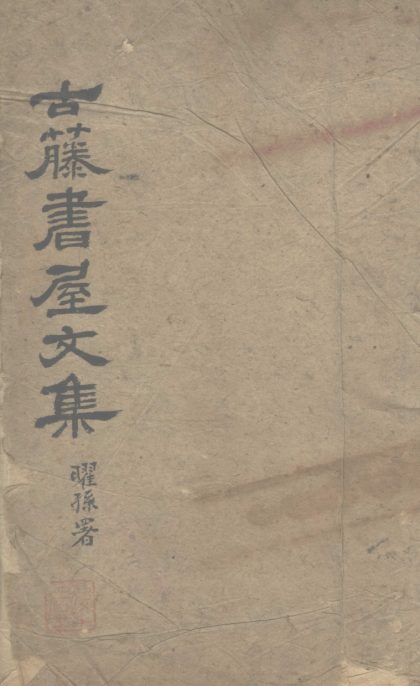 古藤書屋文集
曜孫署